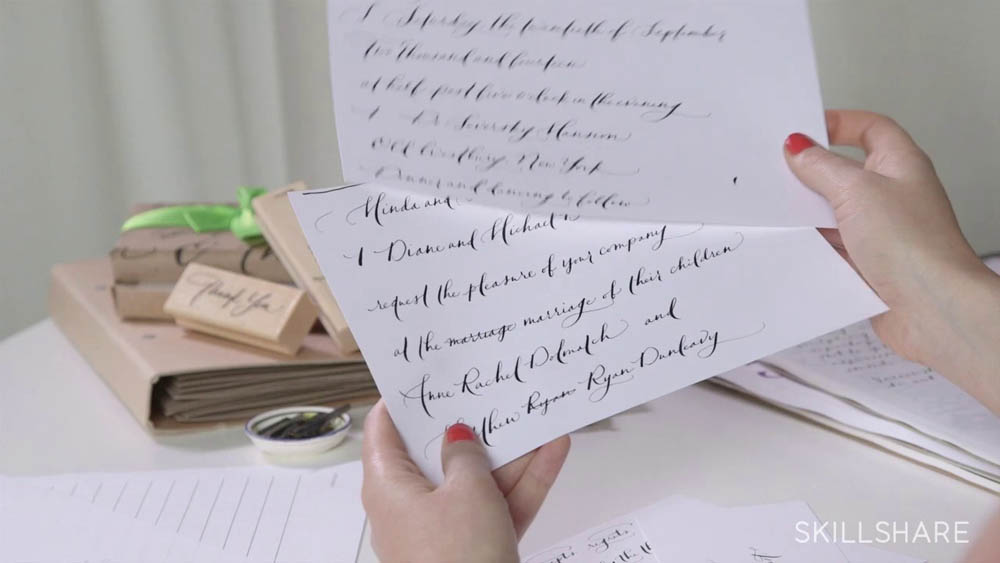 Saturday the twentieth of September
two thousand and fourteen
at half past five o'clock in the evening
Mansion
New York
Dinner and dancing to follow
Minda and
Diane and Michael
request the pleasure of your company
at the marriage marriage of their children
Anne Rachel Dolmatch and
Ryan Ryan Dunleavy
Thank You
regrets
SKILLSHARE